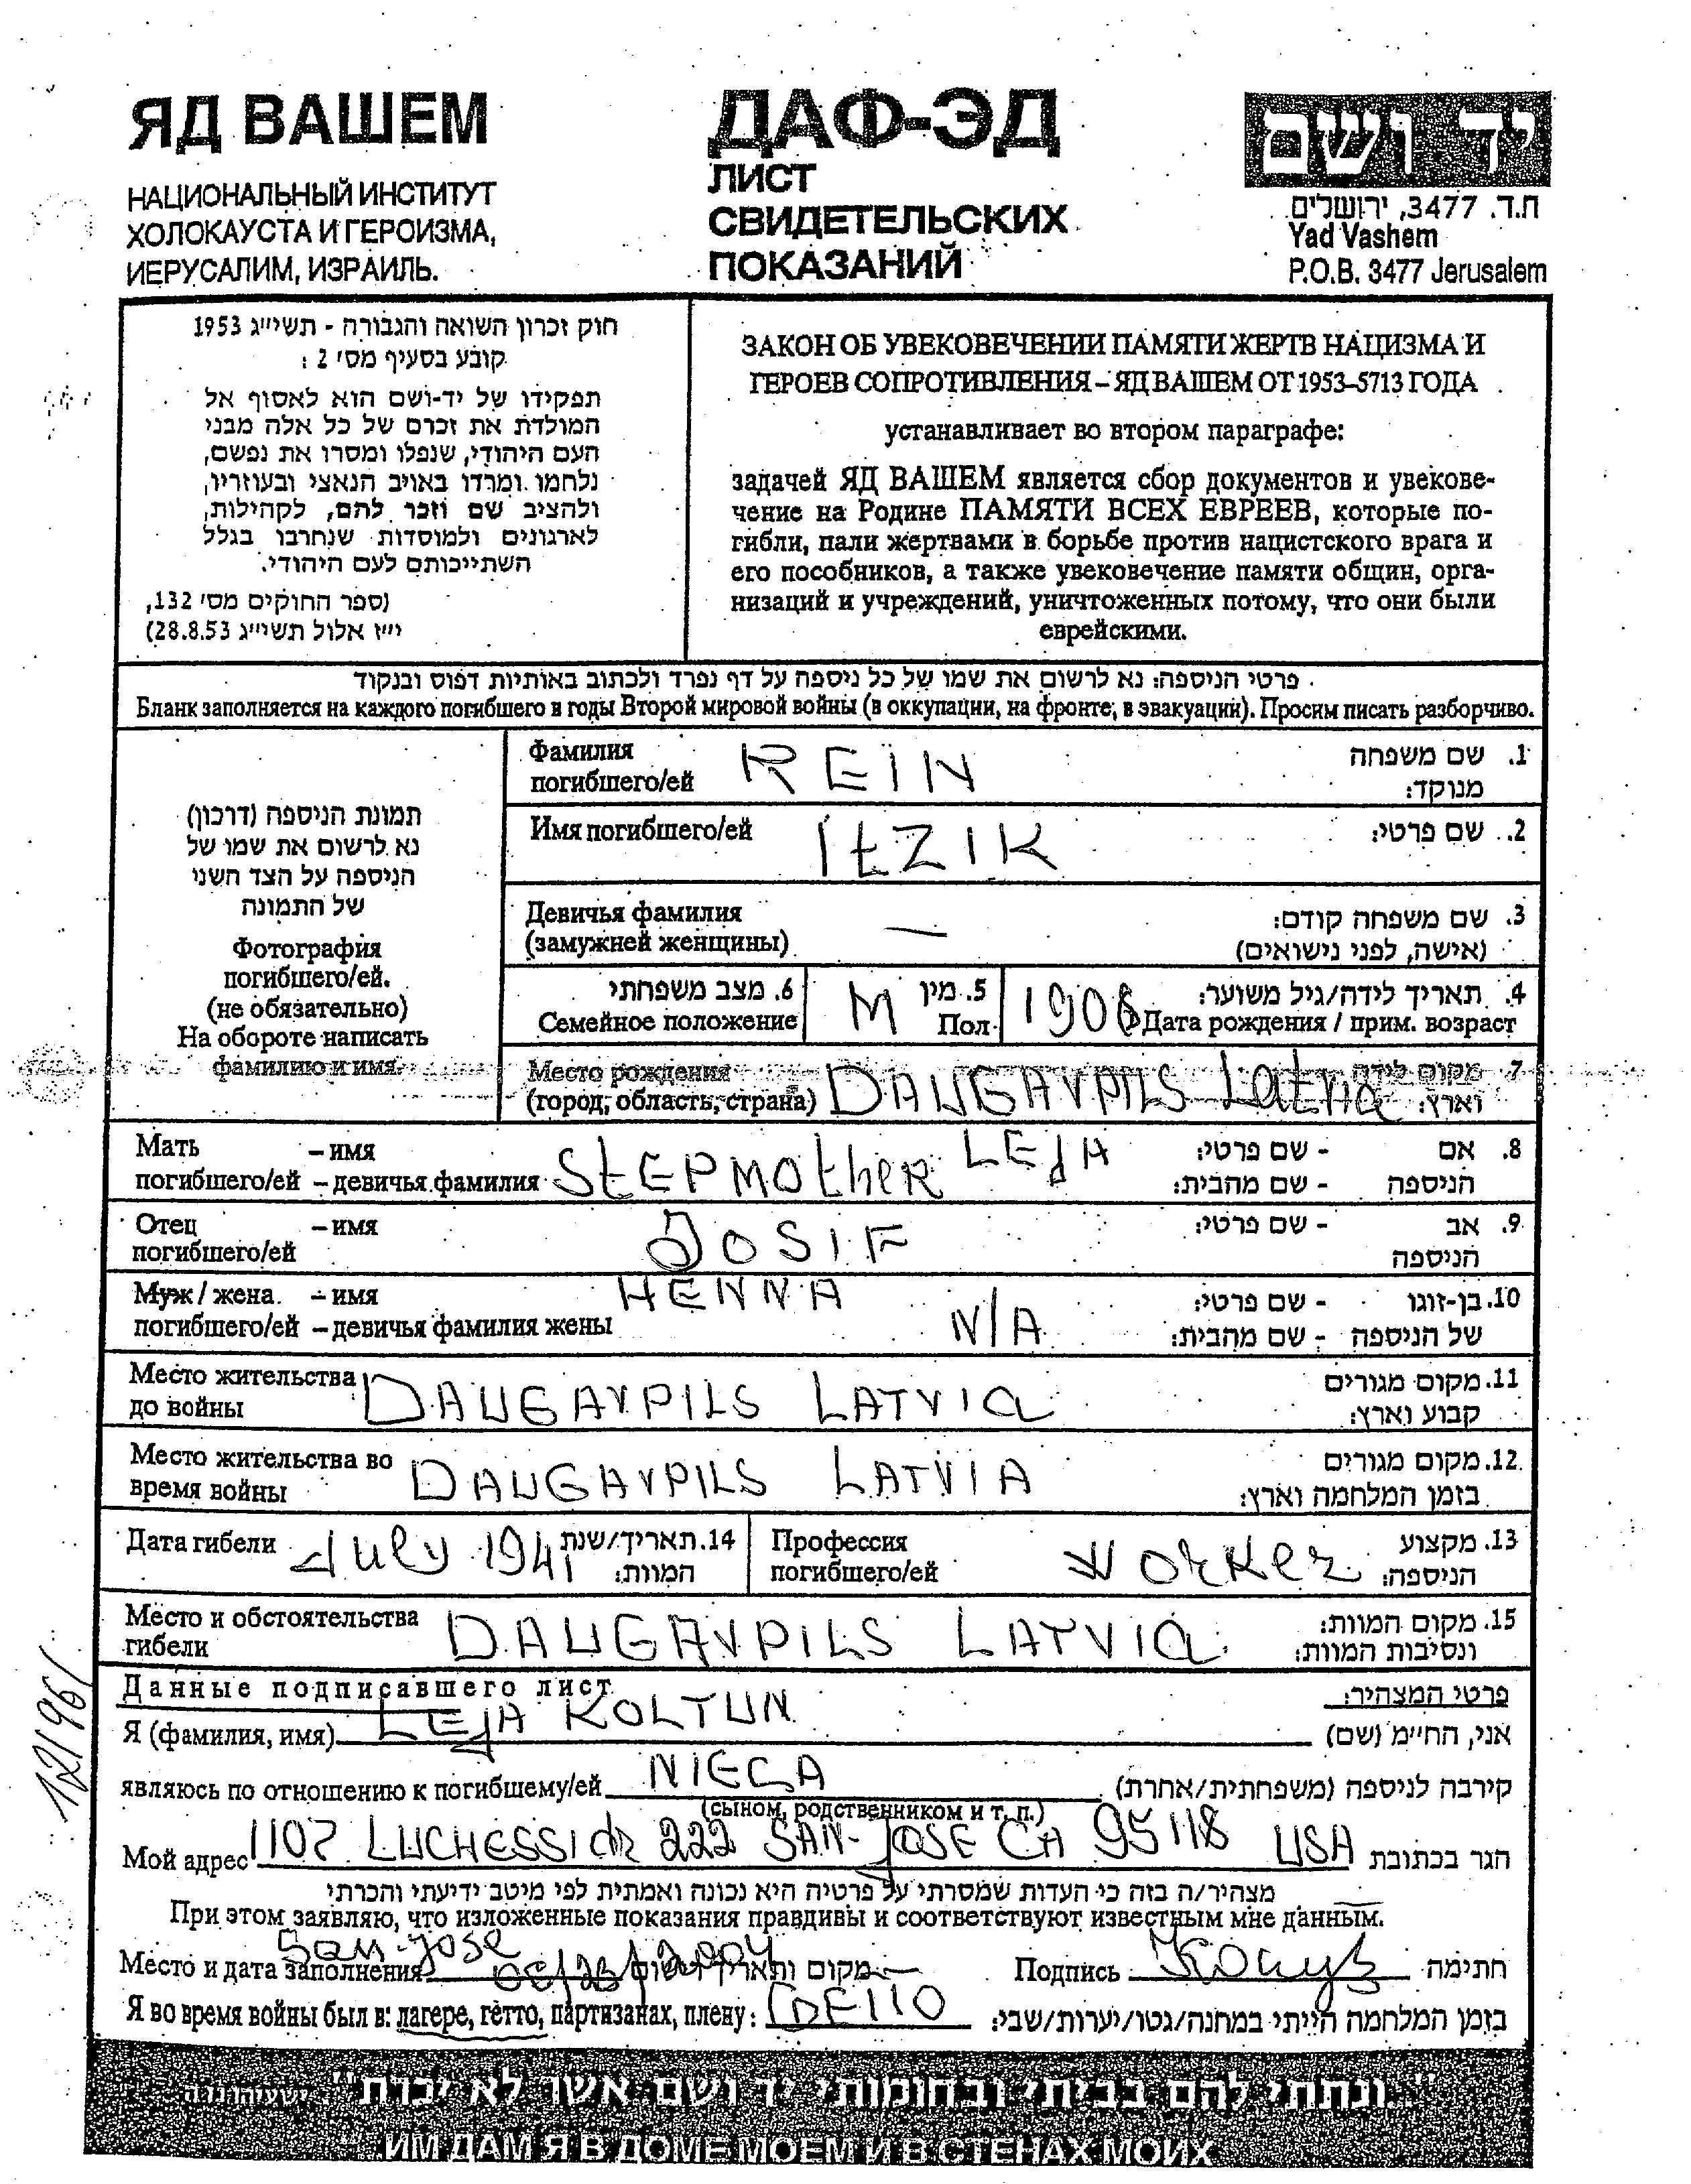 ЯД ВАШЕМ
НАЦИОНАЛЬНЫЙ ИНСТИТУТ
ХОЛОКАУСТА И ГЕРОИЗМА,
ИЕРУСАЛИМ, ИЗРАИЛЬ.
ДАФ-ЭД
ЛИСТ
СВИДЕТЕЛЬСКИХ
ПОКАЗАНИЙ
יד ושם
ת.ד. 3477, ירושלים
Yad Vashem
P.O.B. 3477 Jerusalem
חוק זכרון השואה והגבורה - תשי״ג 1953
קובע בסעיף מס׳ 2 :
תפקידו של יד-ושם הוא לאסוף אל
המולדת את זכרם של כל אלה מבני
העם היהודי, שנפלו ומסרו את נפשם,
נלחמו ומרדו באויב הנאצי ובעוזריו,
ולהציב שם וזכר להם, לקהילות,
לארגונים ולמוסדות שנחרבו בגלל
השתייכותם לעם היהודי.
(ספר החוקים מס׳ 132,
י״ז אלול תשי״ג 28.8.53)
ЗАКОН ОБ УВЕКОВЕЧЕНИИ ПАМЯТИ ЖЕРТВ НАЦИЗМА И
ГЕРОЕВ СОПРОТИВЛЕНИЯ – ЯД ВАШЕМ ОТ 1953–5713 ГОДА
устанавливает во втором параграфе:
задачей ЯД ВАШЕМ является сбор документов и увекове-
чение на Родине ПАМЯТИ ВСЕХ ЕВРЕЕВ, которые по-
гибли, пали жертвами в борьбе против нацистского врага и
его пособников, а также увековечение памяти общин, орга-
низаций и учреждений, уничтоженных потому, что они были
еврейскими.
פרטי הניספה: נא לרשום את שמו של כל ניספה על דף נפרד ולכתוב באותיות דפוס ובנקוד
Бланк заполняется на каждого погибшего в годы Второй мировой войны (в оккупации, на фронте, в эвакуации). Просим писать разборчиво.
תמונת הניספה (דרכון)
נא לרשום את שמו של
הניספה על הצד השני
של התמונה
Фотография
погибшего/ей.
(не обязательно)
На обороте написать
фамилию и имя.
Фамилия REIN 1. שם משפחה
погибшего/ей מנוקד:
Имя погибшего/ей ItZIK 2. שם פרטי:
Девичья фамилия — 3. שם משפחה קודם:
(замужней женщины) (אישה, לפני נישואים)
6. מצב משפחתי M 5. מין 4. תאריך לידה/גיל משוער:
Семейное положение Пол 1906 Дата рождения / прим. возраст
Место рождения DAUGAVPILS Latvia 7. מקום לידה
(город, область, страна) וארץ:
Мать – имя LEJA 8. אם - שם פרטי:
погибшего/ей – девичья фамилия StEPMOthER הניספה - שם מהבית:
Отец – имя JOSIF 9. אב - שם פרטי:
погибшего/ей הניספה
Муж / жена. – имя HENNA 10. בן-זוגו - שם פרטי:
погибшего/ей – девичья фамилия жены N/A של הניספה - שם מהבית:
Место жительства DAUGAVPILS LATVIA 11. מקום מגורים
до войны קבוע וארץ:
Место жительства во DAUGAVPILS LATVIA 12. מקום מגורים
время войны בזמן המלחמה וארץ:
Дата гибели July 1941 14. תאריך/שנת Профессия Worker 13. מקצוע
המוות: погибшего/ей הניספה:
Место и обстоятельства DAUGAVPILS LATVIA 15. מקום המוות:
гибели ונסיבות המוות:
Данные подписавшего лист פרטי המצהיר:
Я (фамилия, имя) LEJA KOLTUN אני, החיי״מ (שם)
являюсь по отношению к погибшему/ей NIECA קירבה לניספה (משפחתית/אחרת)
(сыном, родственником и т. п.)
Мой адрес 1107 LUCHESSI dR 222 SAN-JOSE CA 95118 USA הגר בכתובת
מצהיר/ה בזה כי העדות שמסרתי על פרטיה היא נכונה ואמתית לפי מיטב ידיעתי והכרתי
При этом заявляю, что изложенные показания правдивы и соответствуют известным мне данным.
San-Jose
Место и дата заполнения 06/23/2004 מקום ותאריך רישום Подпись חתימה
Я во время войны был в: лагере, гетто, партизанах, плену: GDETTO בזמן המלחמה הייתי במחנה/גטו/יערות/שבי:
12/96/
"ונתתי להם בביתי ובחומותי יד ושם אשר לא יכרת" ישעיהו נו ה
ИМ ДАМ Я В ДОМЕ МОЕМ И В СТЕНАХ МОИХ